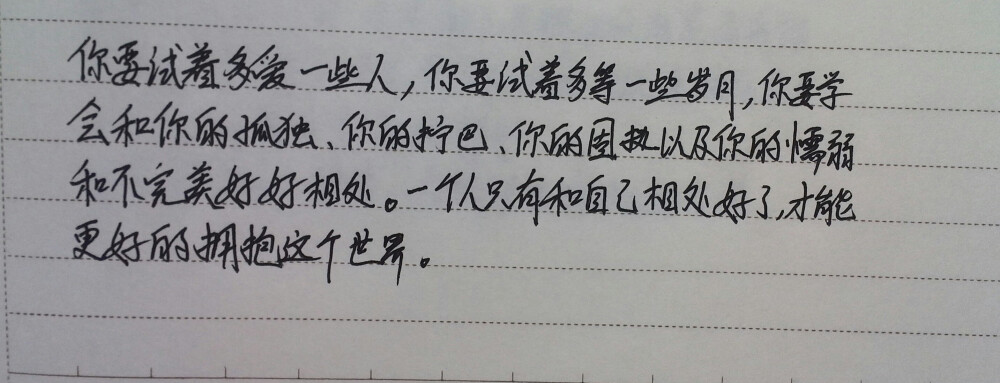 你要试着多爱一些人,你要试着多等一些岁月,你要学
会和你的孤独、你的拧巴、你的固执以及你的懦弱
和不完美好好相处。一个人只有和自己相处好了,才能
更好的拥抱这个世界。